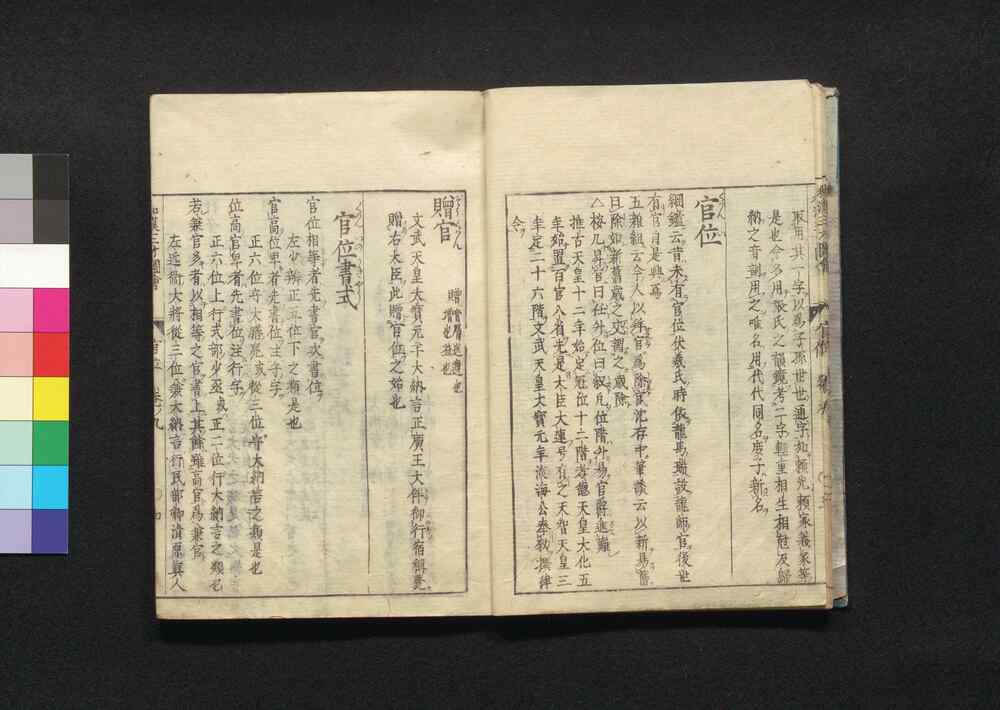 取用其一字以爲子孫世世通字如頼光頼家義家等
是也今多用
反切之音訓用之唯名用代代同名庶子新名
官位
綱鑑云昔未有官位伏羲氏時依龍馬瑞設龍師官後世
有官自是興焉
五雜組云今人以拜官爲除官沈存中筆談云以新易舊
曰除如新舊歳之交謂之歳除
△按凡昇官曰任外位曰叙凡位階升易官爵進難
推古天皇十二年始定冠位十二階孝德天皇大化五
年始置百官八省先是大臣大連号有之天智天皇三
年定二十六階文武天皇大寶元年淡海公奉勅撰律
令
贈官
文武天皇大寶元年大納言正廣王大伴御行宿禰薨
贈右大臣此贈官位之始也
官位書式
官位相等者先書官次書位
左少辨正五位下之類是也
官高位卑者先書位注守字
正六位守大膳亮或從三位守大納言之類是也
位高官卑者先書位注行字
正六位上行式部少丞或正二位行大納言之類也
若兼官多者以相等之官書上其餘雖高官爲兼官
左近衞大將從三位兼大納言行民部卿清原眞人
和漢三才圖會
官位
卷ノ九